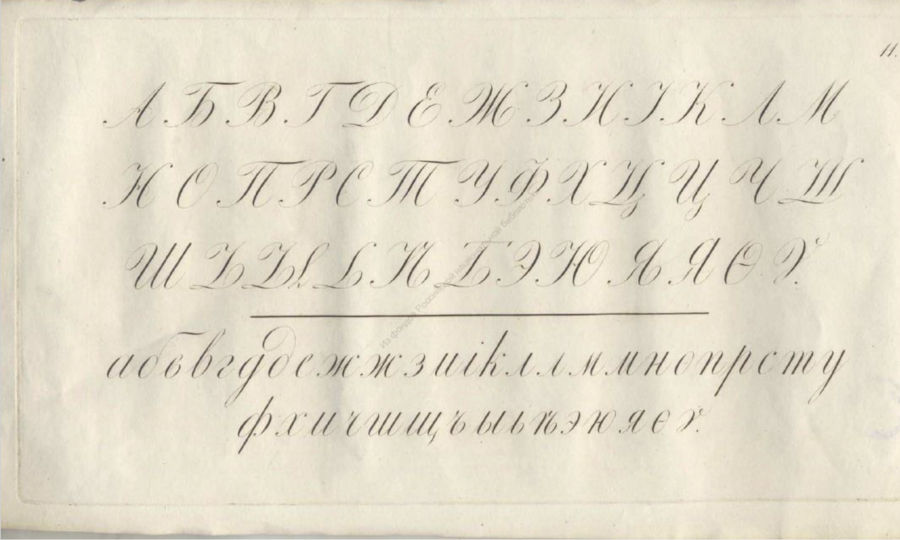 11.
А Б В Г Д Е Ж З И І К Л М
Н О П Р С Т У Ф Х Ц Ц Ч Ш
Ш Ъ Ы Ь Ѣ Ѣ Э Ю Я Я Ѳ Ѵ.
а б в в г д д е ж ж з и і к л л м м н о п р с т у
ф х ц ч ш щ ъ ы ь ѣ э ю я ѳ ѵ.
Из фондов Российской национальной библиотеки